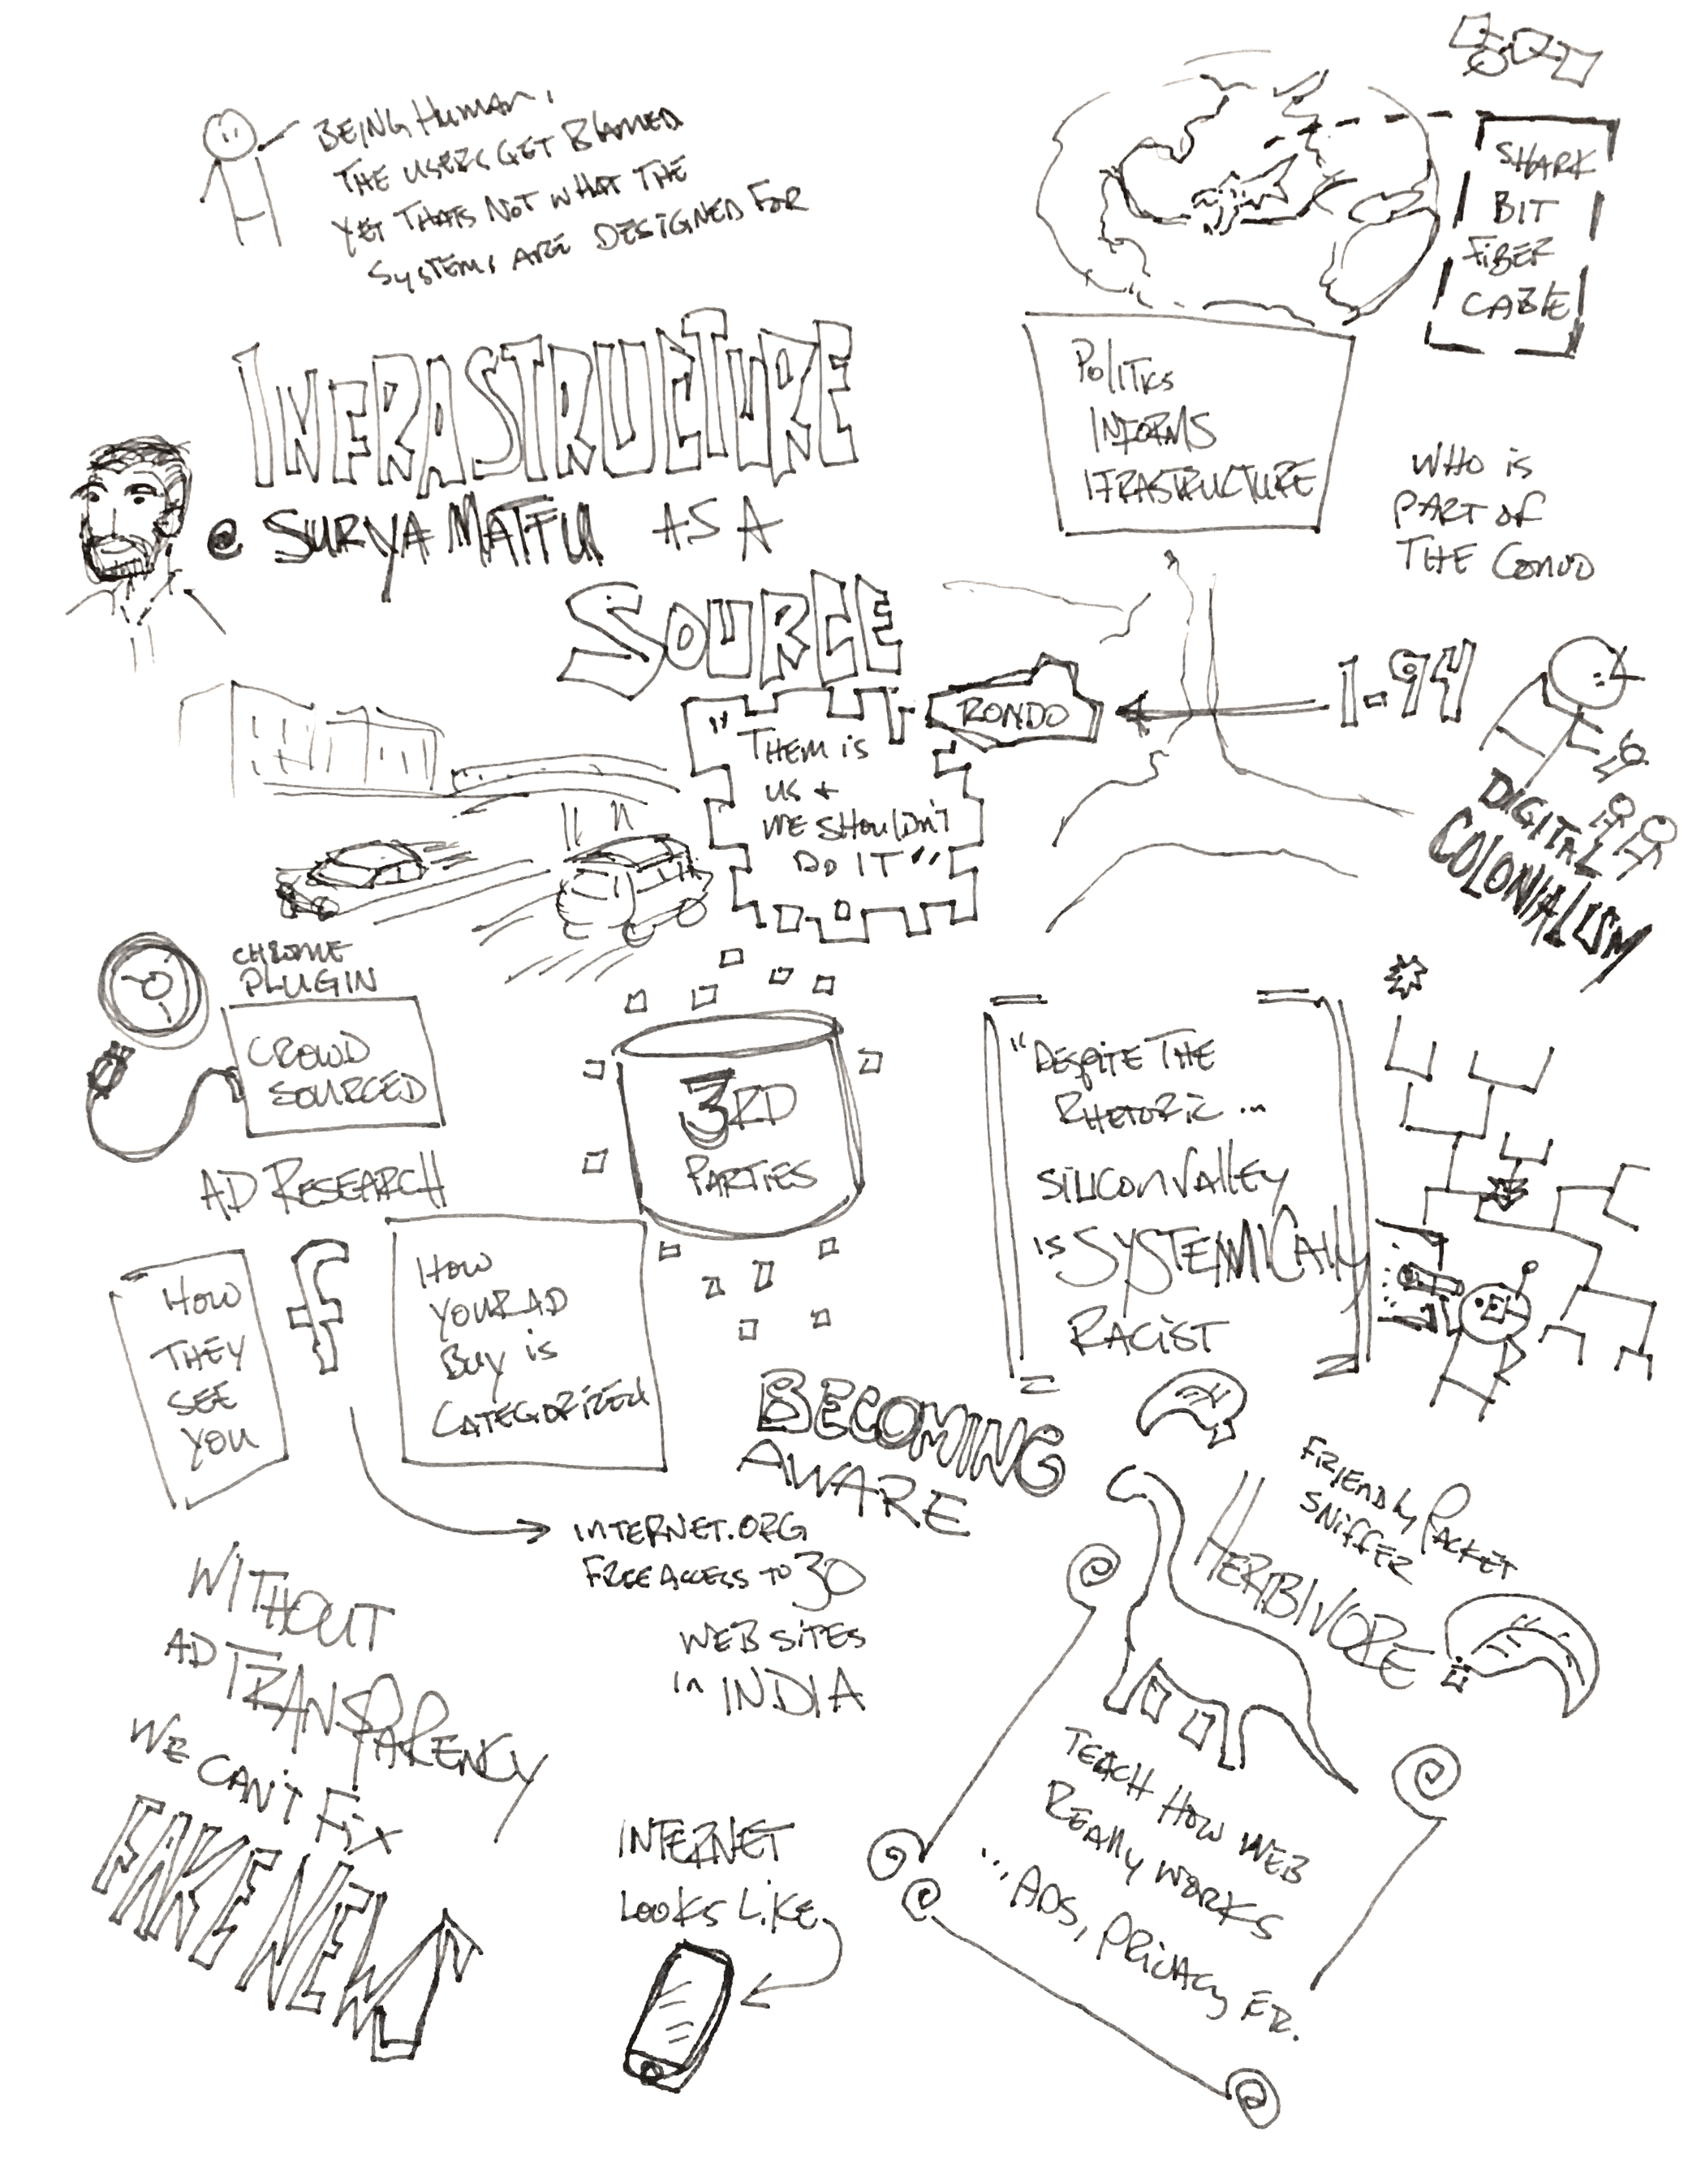 BEING HUMAN,
THE USERS GET BLAMED
YET THATS NOT WHAT THE
SYSTEMS ARE DESIGNED FOR
SHARK
BIT
FIBER
CABLE
INFRASTRUCTURE
@ SURYA MATTU AS A
SOURCE
POLITICS
INFORMS
IFRASTRUCTURE
WHO IS
PART OF
THE
RONDO
I-94
"THEM IS
US +
WE SHOULDN'T
DO IT"
DIGITAL
COLONIALISM
CHROME
PLUGIN
CROWD
SOURCED
AD RESEARCH
3RD
PARTIES
"DESPITE THE
RHETORIC...
SILICON VALLEY
IS SYSTEMICALLY
RACIST
HOW
THEY
SEE
YOU
f
HOW
YOUR AD
BUY IS
CATEGORIZED
BECOMING
AWARE
INTERNET.ORG
FREE ACCESS TO 30
WEB SITES
IN INDIA
FRIENDLY PACKET
SNIFFER
HERBIVORE
WITHOUT
AD TRANSPARENCY
WE CAN'T FIX
FAKE NEWS
INTERNET
LOOKS LIKE
TEACH HOW WEB
REALLY WORKS
...ADS, PRIVACY ER.